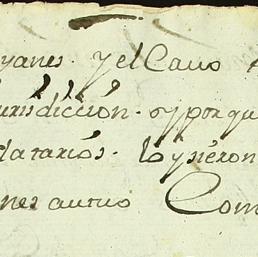 yanes. y el Cavo
urisdiccion. y porqu
datarios. hysieron
nes autuo Com